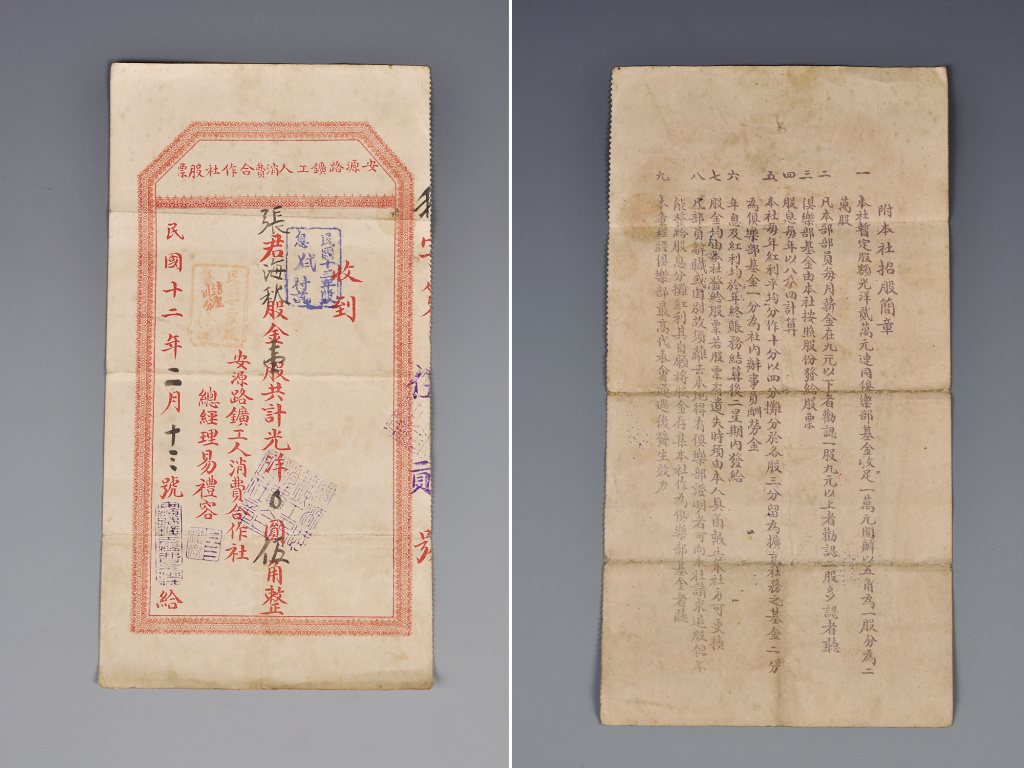 安源路鑛工人消費合作社股票
收到
張君海秋股金壹股共計光洋0圓伍角整
安源路鑛工人消費合作社
總經理易禮容
民國十二年二月十三號
給
民國十二年股
息
付訖
號
附本社招股簡章
一 本社暫定股額光洋貳萬元連同俱樂部基金收足一萬元開辦以五角為一股分為二
萬股
二 凡本部部員每月薪金在九元以下者勸認一股九元以上者勸認二股多認者聽
三 俱樂部基金由本社按照股份發給股票
四 股息每年以八分四計算
五 本社每年紅利平均分作十分以四分攤分於各股三分留為擴充社務之基金二分
為俱樂部基金一分為社內辦事員酬勞金
六 年息及紅利均於年終賬務結算後二星期內發給
七 股金均由本社發給股票若股票有遺失時須由本人具函報告本社方可更換
八 凡部員辭職或因別故須離去本地得有俱樂部證明者可向本社請求退股但不
能發給股息分攤紅利其自願將股金存集本社作為俱樂部基金者聽
九 本章程經俱樂部最高代表會通過後發生效力